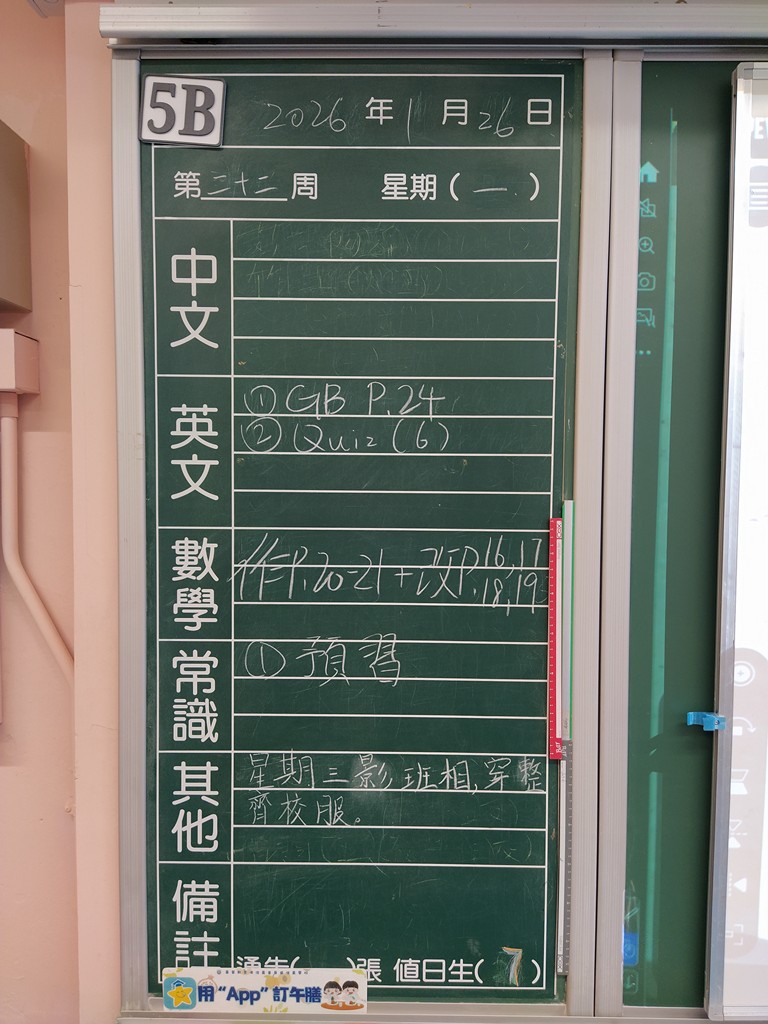 5B
2026年1月26日
第二十二周 星期(一)
中文
英文
① GB P.24
② Quiz (6)
數學
作P.20-21+改P.16,17
18,19
常識
① 預習
其他
星期三影班相,穿整
齊校服。
備註
通告( )張 值日生(7)
用“App”訂午膳